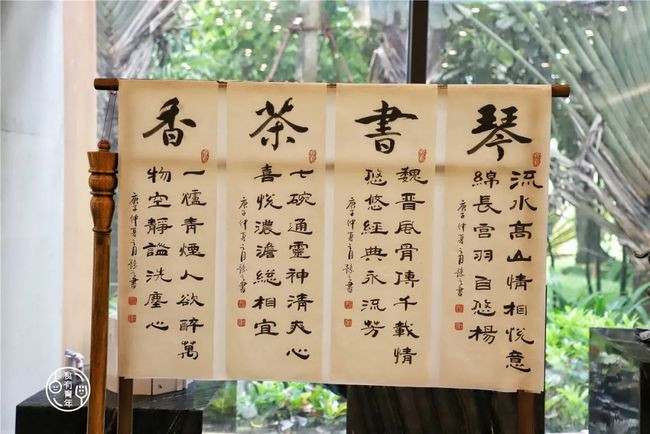 琴
流水高山情相悅意
綿長宮羽自悠楊
庚子仲夏之月
書
魏晉風骨傳千載情
悠悠經典永流芳
庚子仲夏之月
茶
七碗通靈神清爽心
喜悅濃澹總相宜
庚子仲夏之月
香
一爐青煙人欲醉萬
物空靜謐洗塵心
庚子仲夏之月